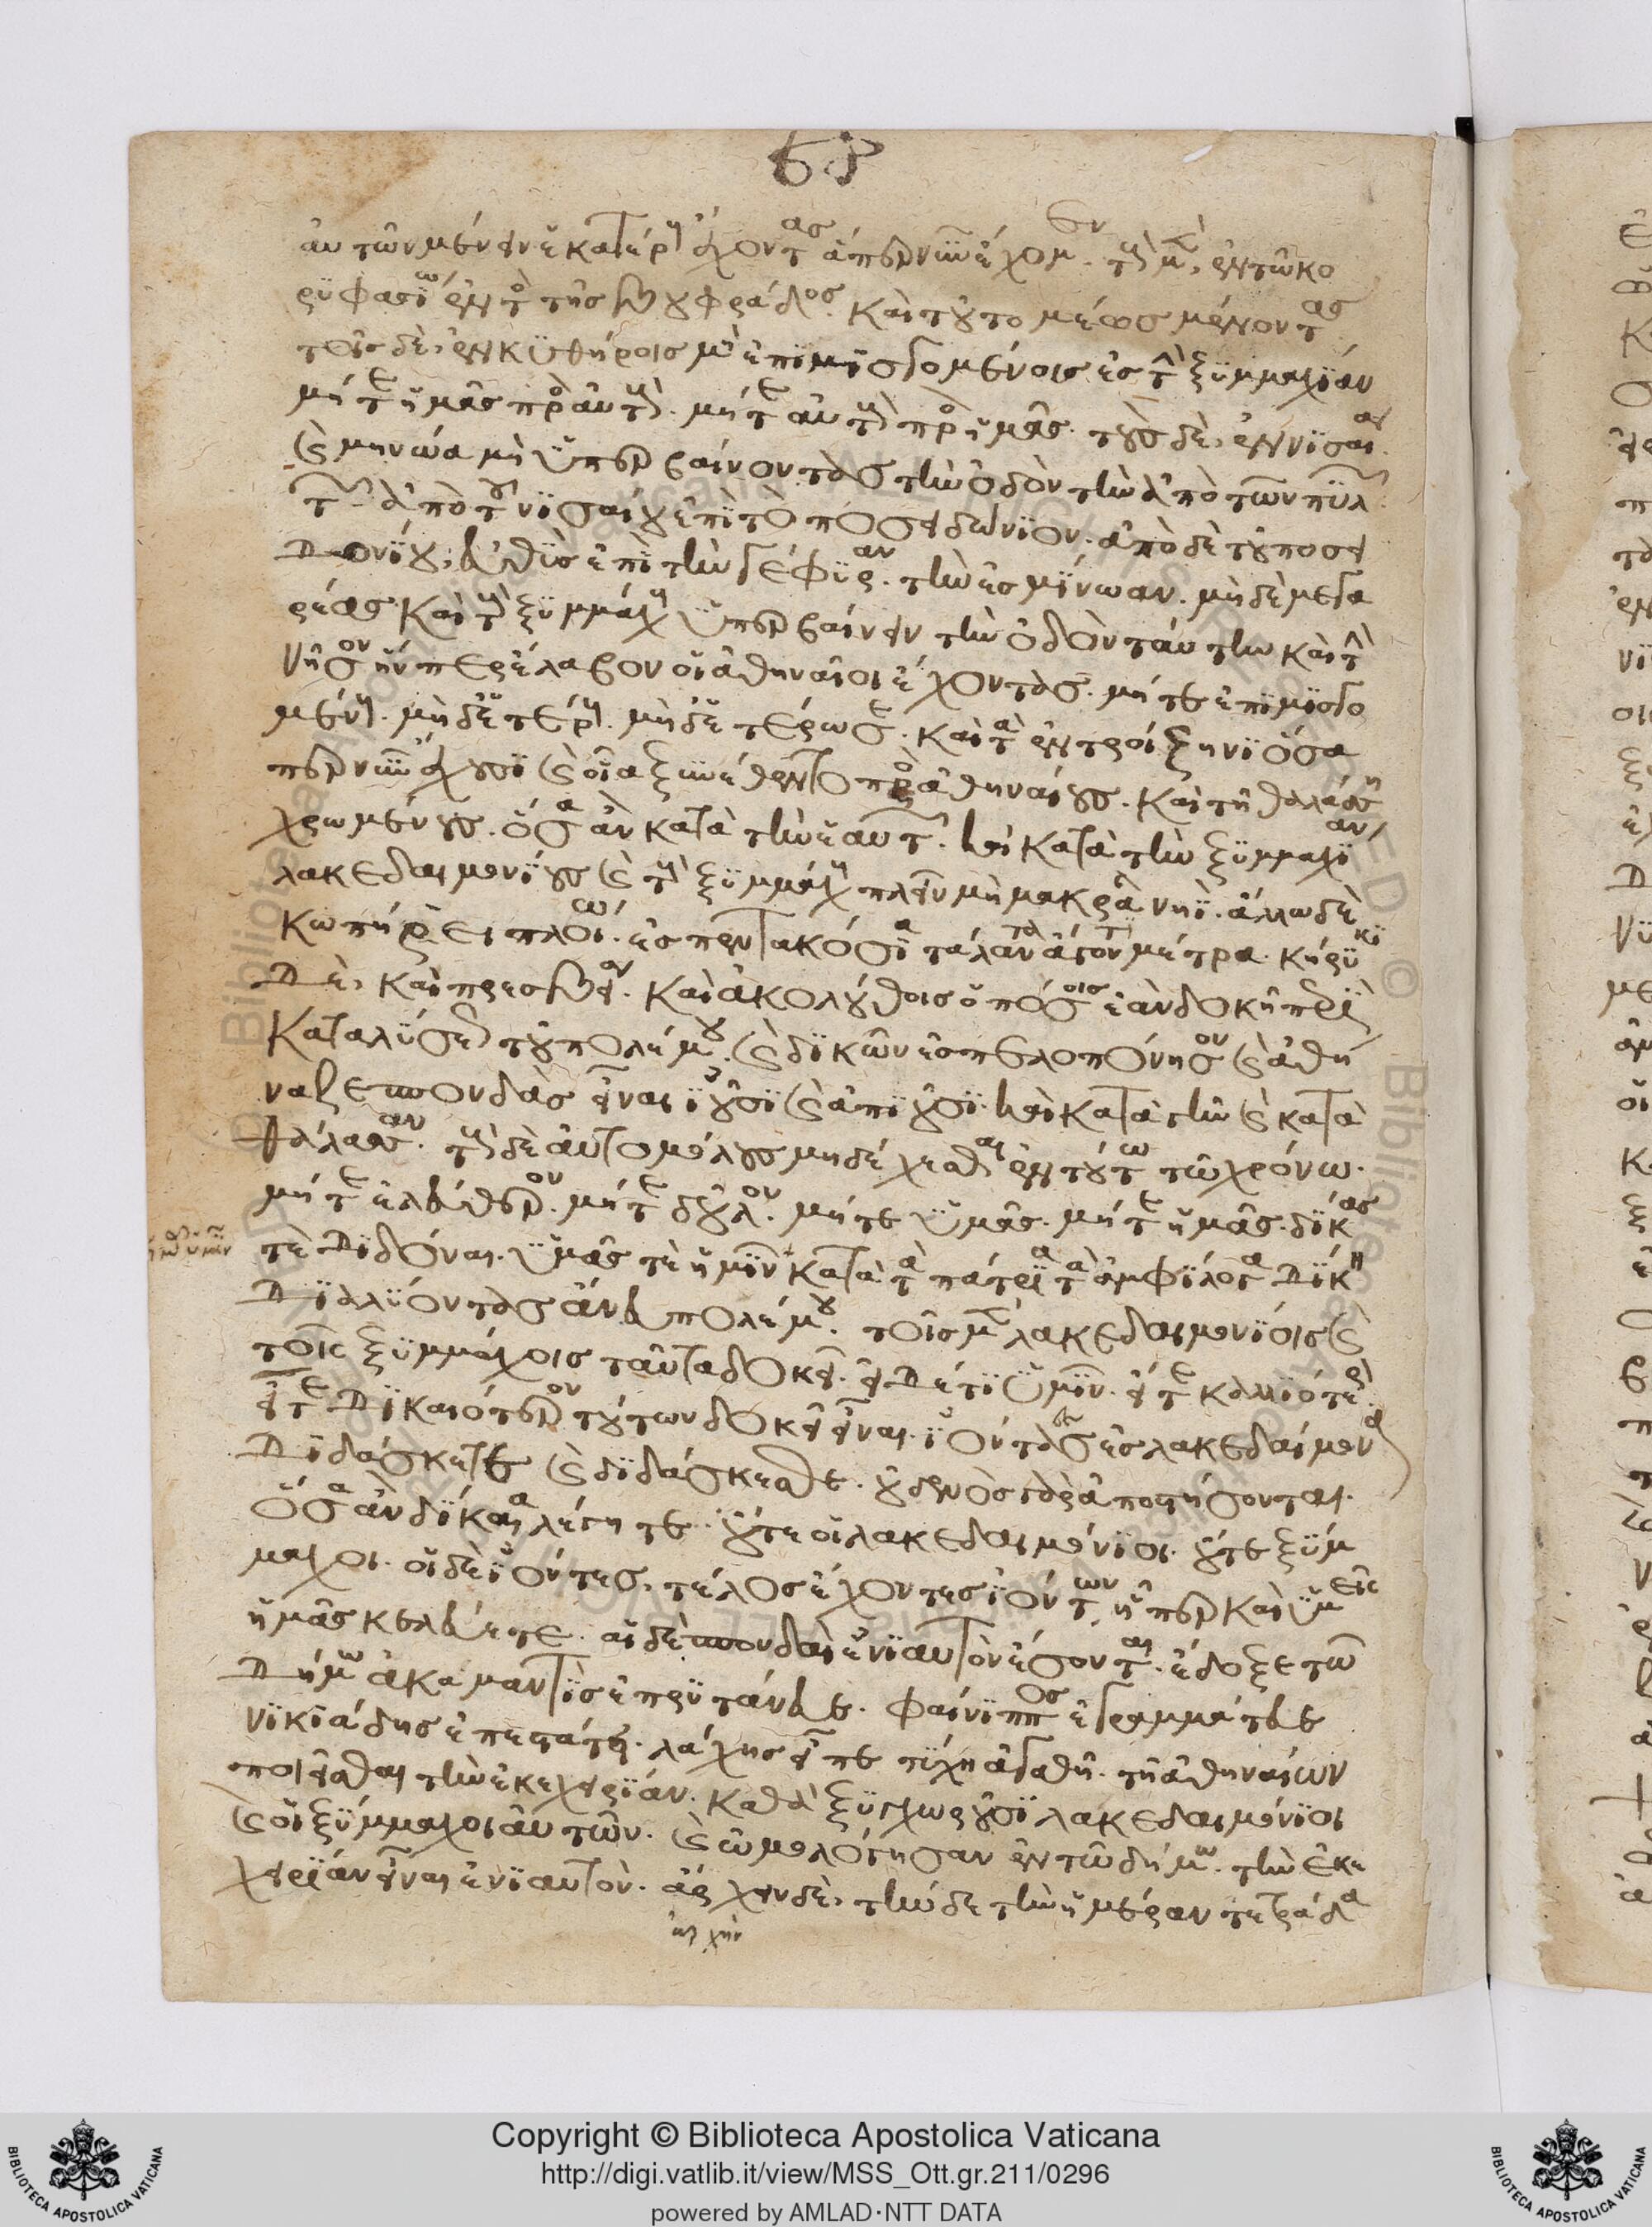 αὐτῶν μένειν ἑκατέρους ἔχοντας ἅπερ νῦν ἔχομεν. τοὺς μὲν, ἐν τῶ κο
ρϋφασίω ἐντὸς τῆς βουφράδος. καὶ τοῦ το μέως μένοντας
τοῖς δὲ, ἐν κϋθήροις μὴ ἐπιμισγομένοις ἐς τὴν ξϋμμαχίαν
μήτε ἡμᾶς πρὸς αὐτοὺς. μήτε αὐτοὺς πρὸς ἡμᾶς. τοὺς δὲ, ἐν νϊσαίαι
καὶ μηνώα μὴ ὑπερβαίνοντας τὴν ὁδὸν τὴν ἀπὸ τῶν πϋλῶν
τῶν ἀπὸ τοῦ νϊσαίου ἐπὶ τὸ ποσειδώνιον. ἀπὸ δὲ τοῦ ποσει
δονίου, εὐθὺς ἐπὶ τὴν γέφϋραν. τὴν ἐς μίνωαν. μὴ δὲ μεγα
ρέας. καὶ τοὺς ξϋμμάχους ὑπερβαίνειν τὴν ὁδὸν ταύτην καὶ τὴν
νῆσον ἥνπερ ἔλαβον οἱ ἀθηναῖοι ἔχοντας. μήτε ἐπιμϊσγο
μένους. μὴ δετέρους. μὴ δετέρωσε. καὶ τὰ ἐν τροίζηνι ὅσα
περ νῦν ἔχουσϊ καὶ οἷα ξυνέθεντο πρὸς ἀθηναίους. καὶ τῆ θαλάσση
χρωμένους. ὅσα ἂν κατὰ τὴν ἑαυτῶν. καὶ κατὰ τὴν ξϋμμαχίαν
λακεδαιμονίους καὶ τοὺς ξϋμμάχους πλεῖν μὴ μακρᾶ νηΐ. ἄλλω δὲ
κωπήρει πλοίω. ἐς πεντακόσια τάλαντα ἄγοντι μέτρα. κήρϋκι
δὲ, καὶ πρεσβεία. καὶ ἀκολούθοις ὁπόσοις ἐὰν δοκῆ περὶ
καταλύσεως τοῦ πολέμου. καὶ δϊκῶν ἐς πελοπόνησον καὶ ἀθή
ναζε σπονδὰς εἶναι ἰοῦσϊ καὶ ἀπϊοῦσϊ. καὶ κατὰ γῆν καὶ κατὰ
θάλασσαν. τοὺς δὲ αὐτομόλους μὴ δέχεσθαι ἐν τούτω τῶ χρόνω.
μήτε ἐλεύθερον. μήτε δοῦλον. μήτε ὑμᾶς. μήτε ἡμᾶς. δίκας
τὲ δϊδόναι. ὑμᾶς τὲ ἡμῖν κατὰ τὰ πάτρϊα τὰ ἀμφίλογα δίκη
δϊαλϋόντας ἄνευ πολέμου. τοῖς μὲν λακεδαιμονίοις καὶ
τοῖς ξϋμμάχοις ταῦτα δοκεῖ. εἰ δέ τϊ ὑμῖν. εἴτε κάλλιότερον
εἴτε δϊκαιότερον τούτων δοκεῖ εἶναι. ἰόντας ἐς λακεδαίμονα
διδάσκετε καὶ δϊδάσκεσθε. οὐδενὸς γὰρ ἀποστήσονται.
ὅσα ἂν δίκαια λέγητε. οὔτε οἱ λακεδαιμόνϊοι. οὔτε ξϋμ
μαχοι. οἱ δὲ ἰόντες, τέλος ἔχοντες ἰόντων, ἧπερ καὶ ὑμεῖς
ἡμᾶς κελεύετε. αἱ δὲ σπονδαὶ ἐνϊαυτὸν ἔσονται. ἔδοξε τῶ
δήμω ἀκαμαντῒς ἐπρϋτάνευε. φαίνιππος ἐγραμμάτευε
νϊκϊάδης ἐπεστάτει. λάχης εἶπε τύχη ἀγαθῆ. τῆ ἀθηναίων
ποιεῖσθαι τὴν ἐκεχειρίαν. καθὰ ξϋγχωροῦσϊ λακεδαιμόνϊοι
καὶ οἱ ξϋμμαχοι αὐτῶν. καὶ ὡμολόγησαν ἐν τῶ δήμω. τὴν ἐκε
χειρίαν εἶναι ἐνϊαυτὸν. ἄρχειν δὲ, τήνδε τὴν ἡμέραν τετράδα